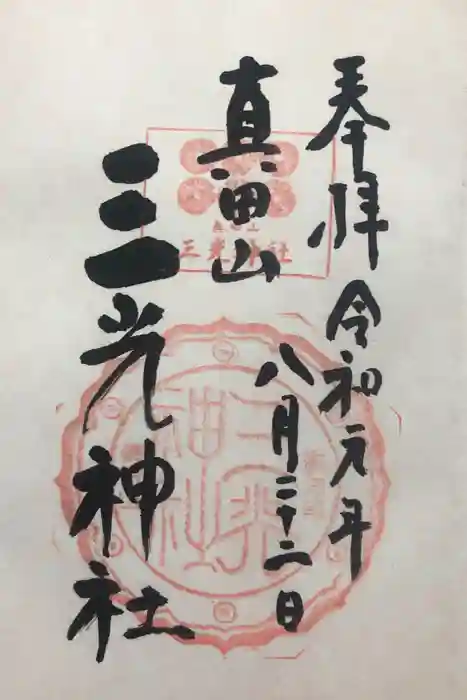 奉拝 令和元年
八月二十二日
真田山
三光神社
真田山
三光神社